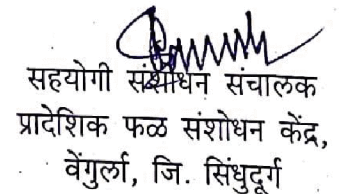 सहयोगी संशोधन संचालक
प्रादेशिक फळ संशोधन केंद्र,
वेंगुर्ला, जि. सिंधुदूर्ग